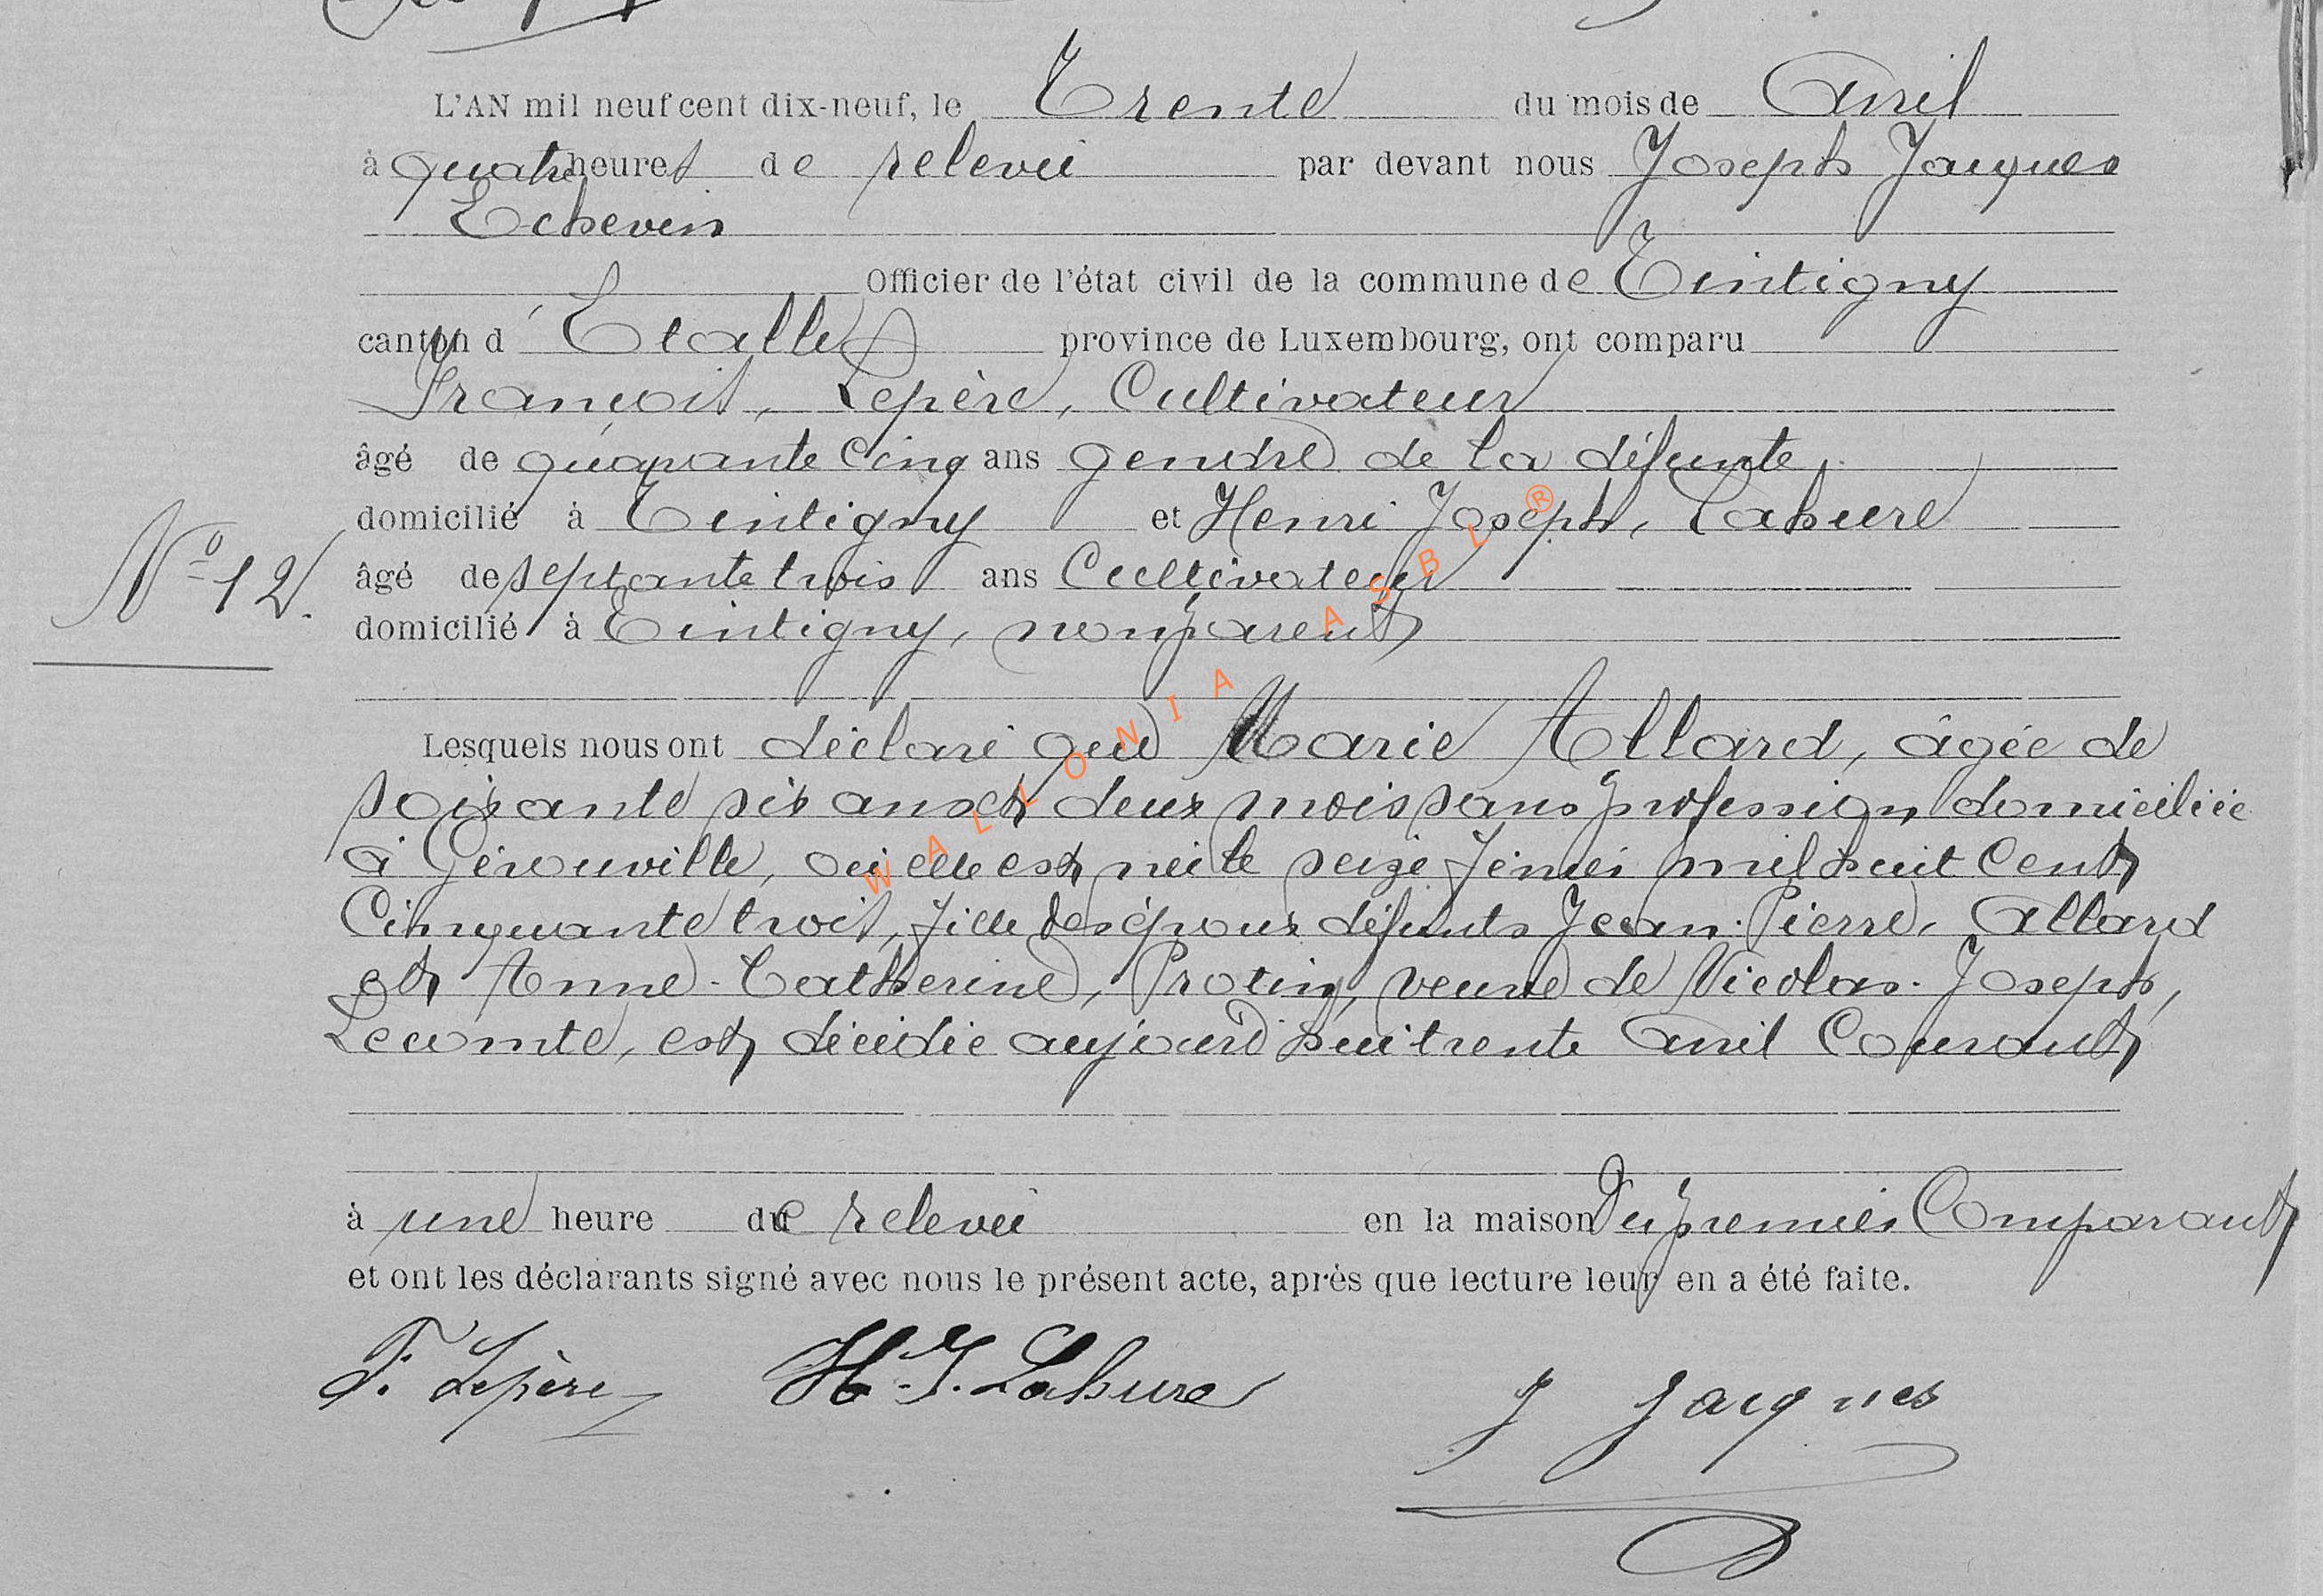 L'AN mil neuf cent dix-neuf, le Trente du mois de Avril
à quatre heures de relevée par devant nous Joseph Jacques
Echevin
Officier de l'état civil de la commune de Tintigny
canton d'Etalle province de Luxembourg, ont comparu
François, Lepère, Cultivateur
âgé de quarante cinq ans gendre de la défunte,
domicilié à Tintigny et Henri Joseph, Lahure
N° 12. âgé de septante trois ans Cultivateur
domicilié à Tintigny, non parent
Lesquels nous ont déclaré que Marie Allard, âgée de
soixante six ans et deux mois sans profession domiciliée
à Gérouville, où elle est née le seize février mil huit Cent
Cinquante trois, fille des époux défunts Jean-Pierre, Allard
et Anne-Catherine, Protin, veuve de Nicolas-Joseph,
Lecomte, est décédée aujourd'hui trente Avril Courant
à une heure de relevée en la maison Du premier Comparant
et ont les déclarants signé avec nous le présent acte, après que lecture leur en a été faite.
F. Lepère H.J. Lahure J Jacques
WALLONIA ASBL ®